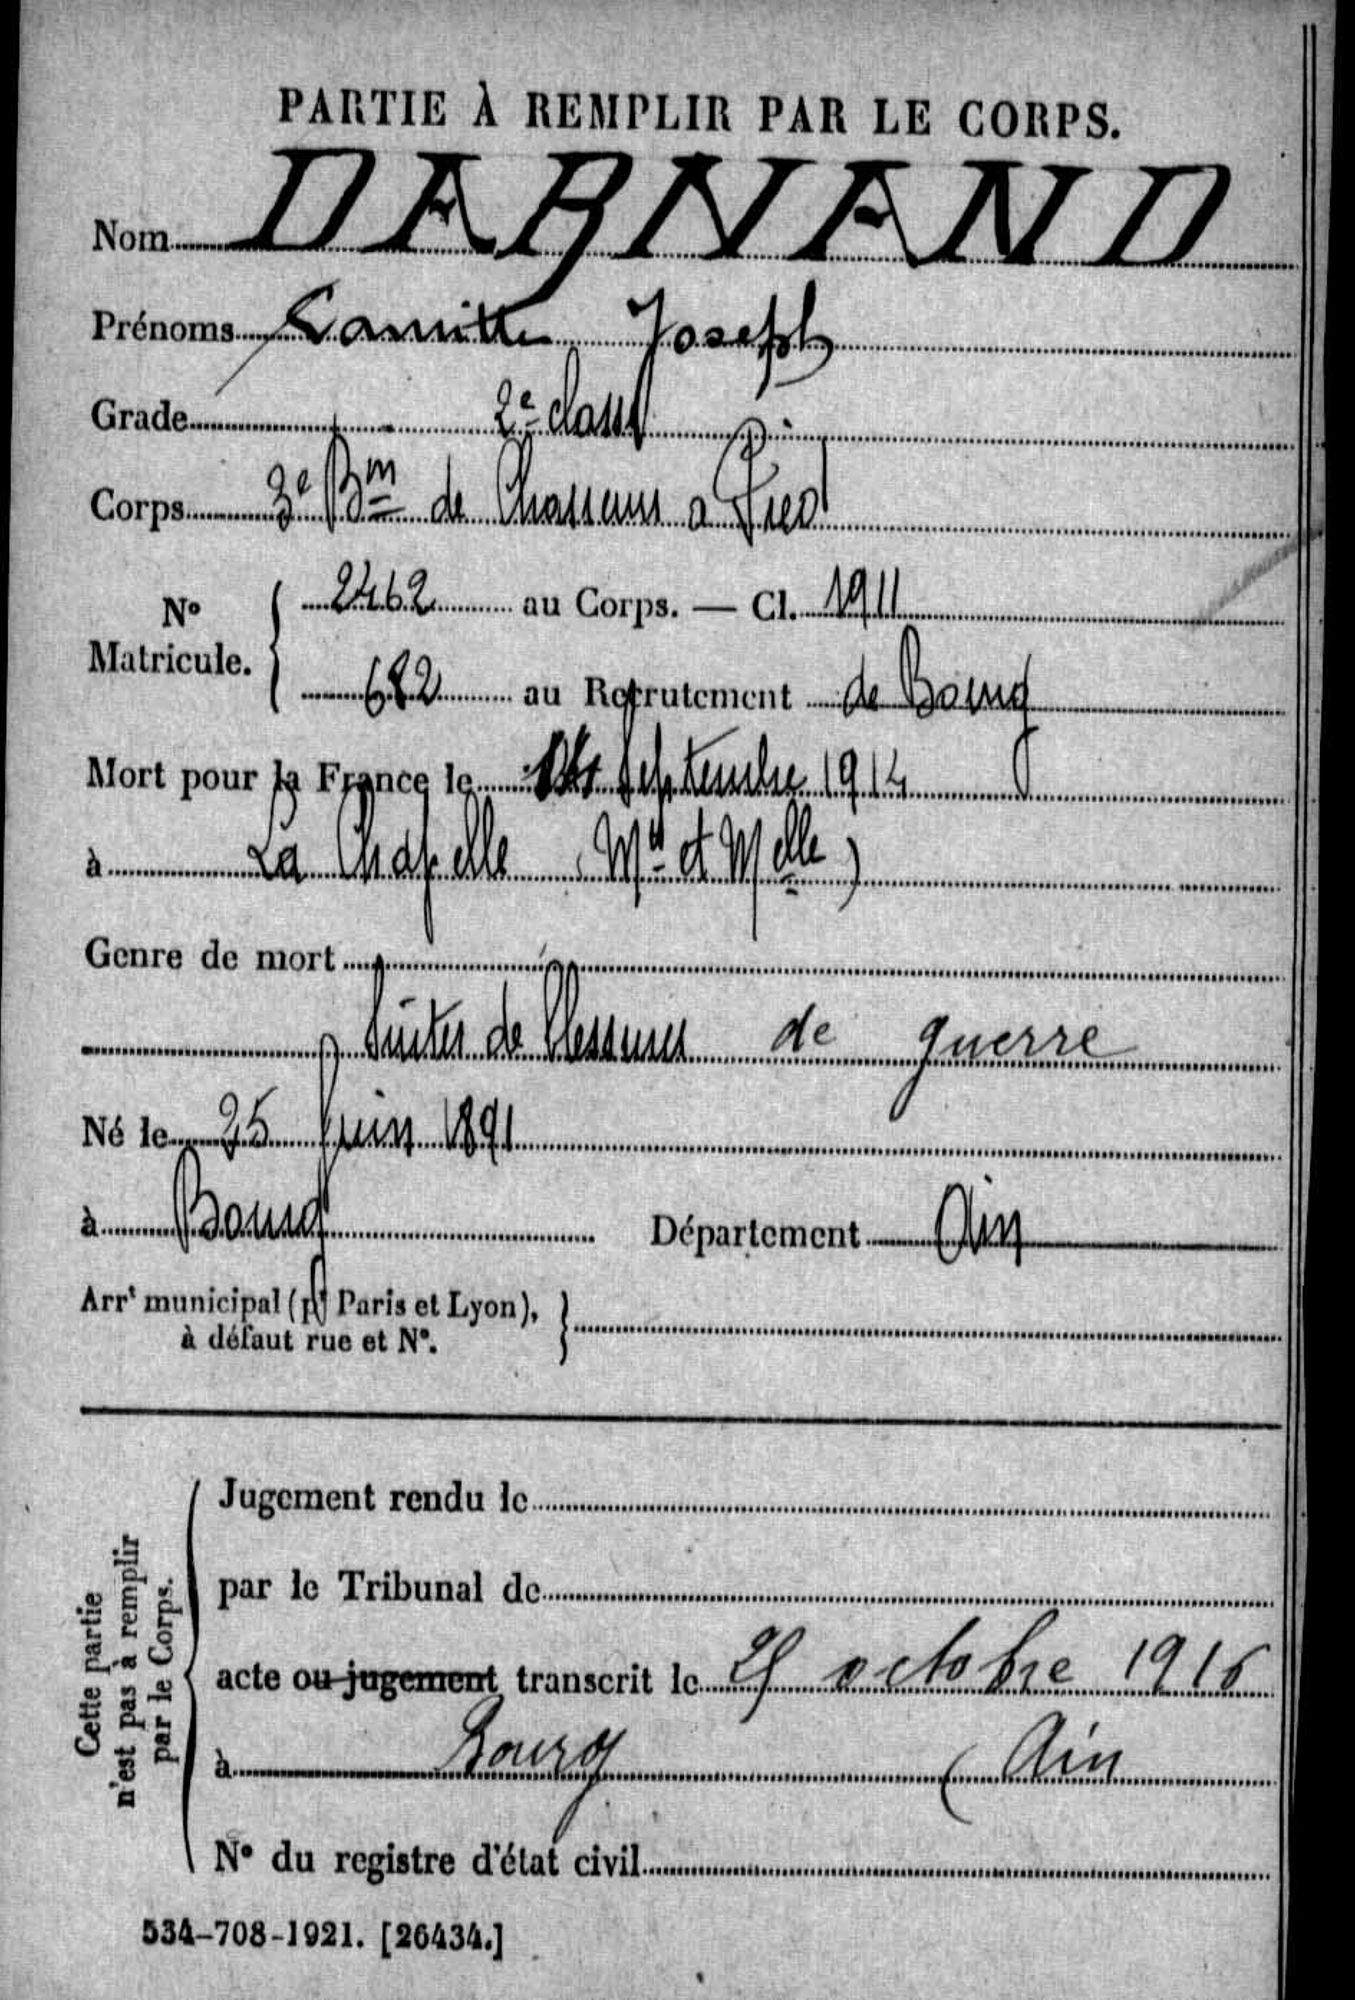 PARTIE À REMPLIR PAR LE CORPS.
Nom DARNAND
Prénoms Camille Joseph
Grade 2e classe
Corps 3e Bm de Chasseurs a Pied
No Matricule. 2462 au Corps. — Cl. 1911
682 au Recrutement de Bourg
Mort pour la France le Septembre 1914
à La Chapelle (Mthe et Melle)
Genre de mort
Suites de Blessures de guerre
Né le 25 Juin 1891
à Bourg Département Ain
Arrt municipal (pr Paris et Lyon),
à défaut rue et No.
Cette partie
n'est pas à remplir
par le Corps.
Jugement rendu le
par le Tribunal de
acte ou jugement transcrit le octobre 1916
à Bourg (Ain
No du registre d'état civil
534-708-1921. [26434.]